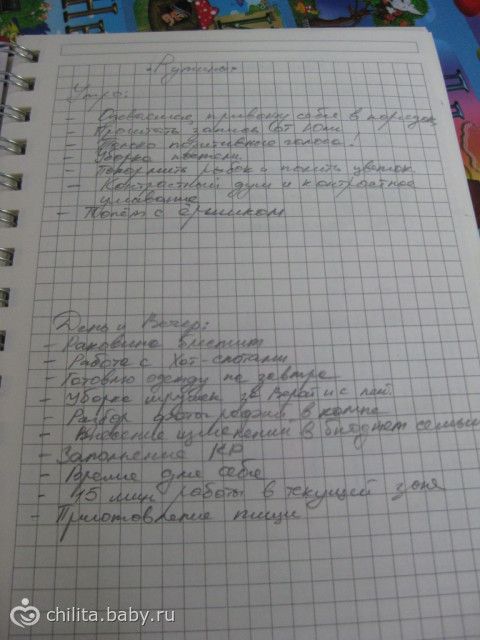 "Рутины"
Утро:
- Одеваемся, привожу себя в порядок
- Прочитать записи от
- Только позитивного голоса!
- Уборка постели.
- Покормить рыбок и полить цветок.
- Контрастный душ и контрастное
умывание
- Топём с ёршиком
День и Вечер:
- Раковина блестит
- Работа с Хот-спотами
- Готовлю одежду на завтра
- Уборка игрушек за Верой и с
- Разбор в компе
- Внесение изменений в бюджет семьи
- Заполнение КР
- Время для себя
- 15 мин работы в текущей зоне
- Приготовление пищи
chilita.baby.ru